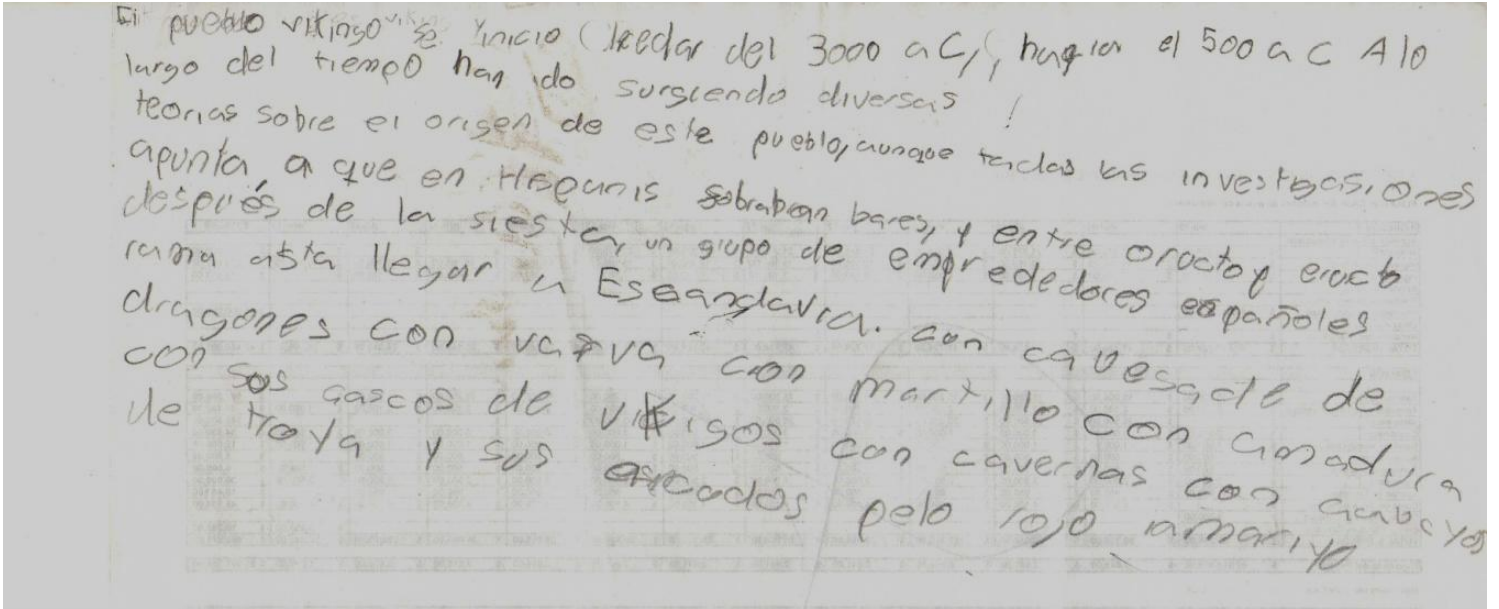 El pueblo vikingo se inicio (kedar del 3000 a C,(, hagia el 500 a C A lo
largo del tiempo han ido surgiendo diversas
teorias sobre el origen de este pueblo, aunque todas las investigasiones
apunta, a que en Hispanis sobraban bares, y entre oructo y eructo
después de la siesta, un grupo de empredédores españoles
rama asta llegar a Escandavia. con cavesa de de
dragones con varva con martillo con amadura
con sus cascos de vikigos con cavernas con cabayos
de troya y sus escudos pelo rojo amariyo